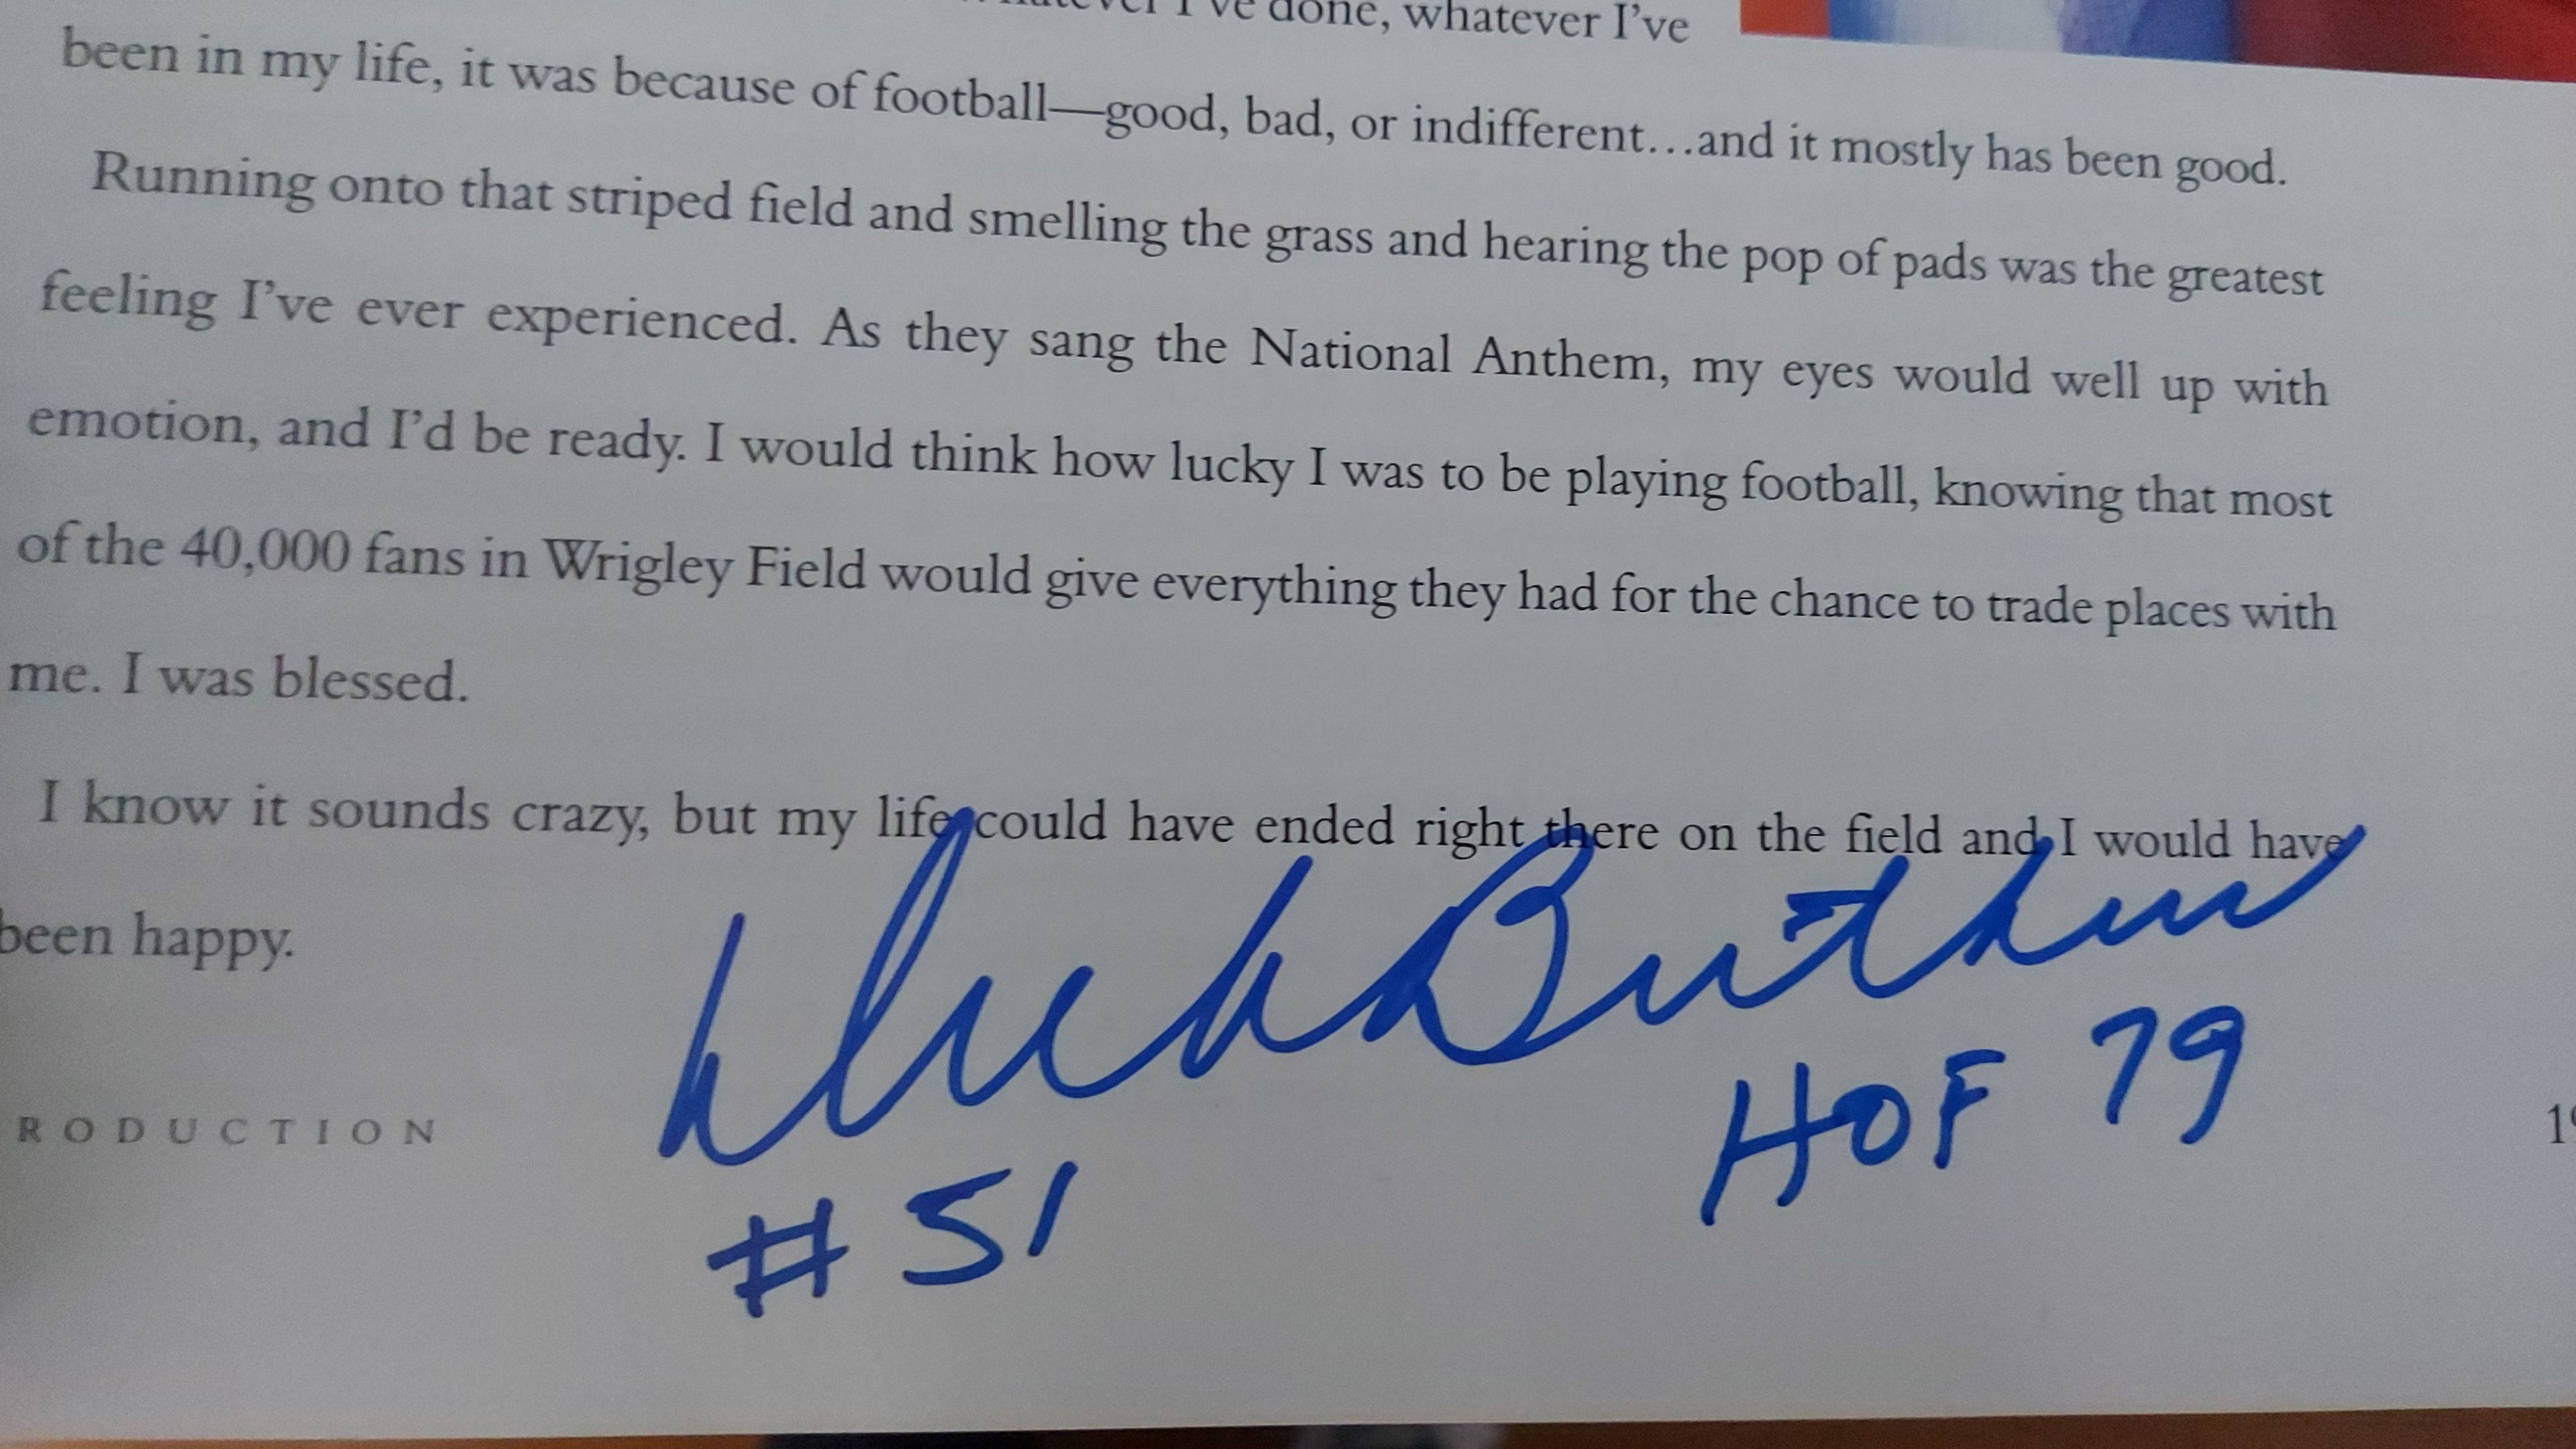 I've done, whatever I've
been in my life, it was because of football—good, bad, or indifferent...and it mostly has been good.
Running onto that striped field and smelling the grass and hearing the pop of pads was the greatest
feeling I've ever experienced. As they sang the National Anthem, my eyes would well up with
emotion, and I'd be ready. I would think how lucky I was to be playing football, knowing that most
of the 40,000 fans in Wrigley Field would give everything they had for the chance to trade places with
me. I was blessed.
I know it sounds crazy, but my life could have ended right there on the field and I would have
been happy.
Dick Butkus
HOF 79
RODUCTION
#51